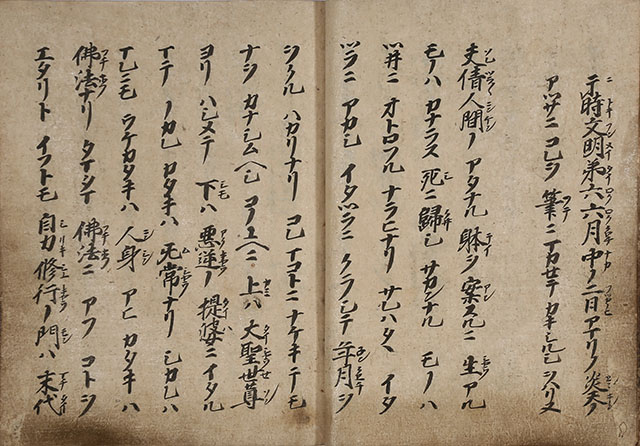 于時文明弟六六月中ノ二日アマリノ炎天ノ
アツサニ コレヲ 筆ニマカセテ カキシルシヲハリヌ
夫倩人間ノ アタナル 躰ヲ 案スルニ 生アル
モノハ カナラス 死ニ歸シ サカンナル モノハ
ツ井ニ オトロフル ナラヒナリ サレハタヽ イタ
ツラニ アカシ イタツラニ クラシテ 年月ヲ
ヲクル ハカリナリ コレ マコトニ ナケキテモ
ナヲ カナシムヘシ コノユヘニ 上ハ 大聖世尊
ヨリ ハシメテ 下ハ 悪逆ノ 提婆ニ イタル
マテ ノカレ カタキハ 无常ナリ シカレハ
マレニモ ウケカタキハ 人身 アヒ カタキハ
佛法ナリ タマタマ 佛法ニ アフ コトヲ
エタリト イフトモ 自力 修行ノ門ハ 末代